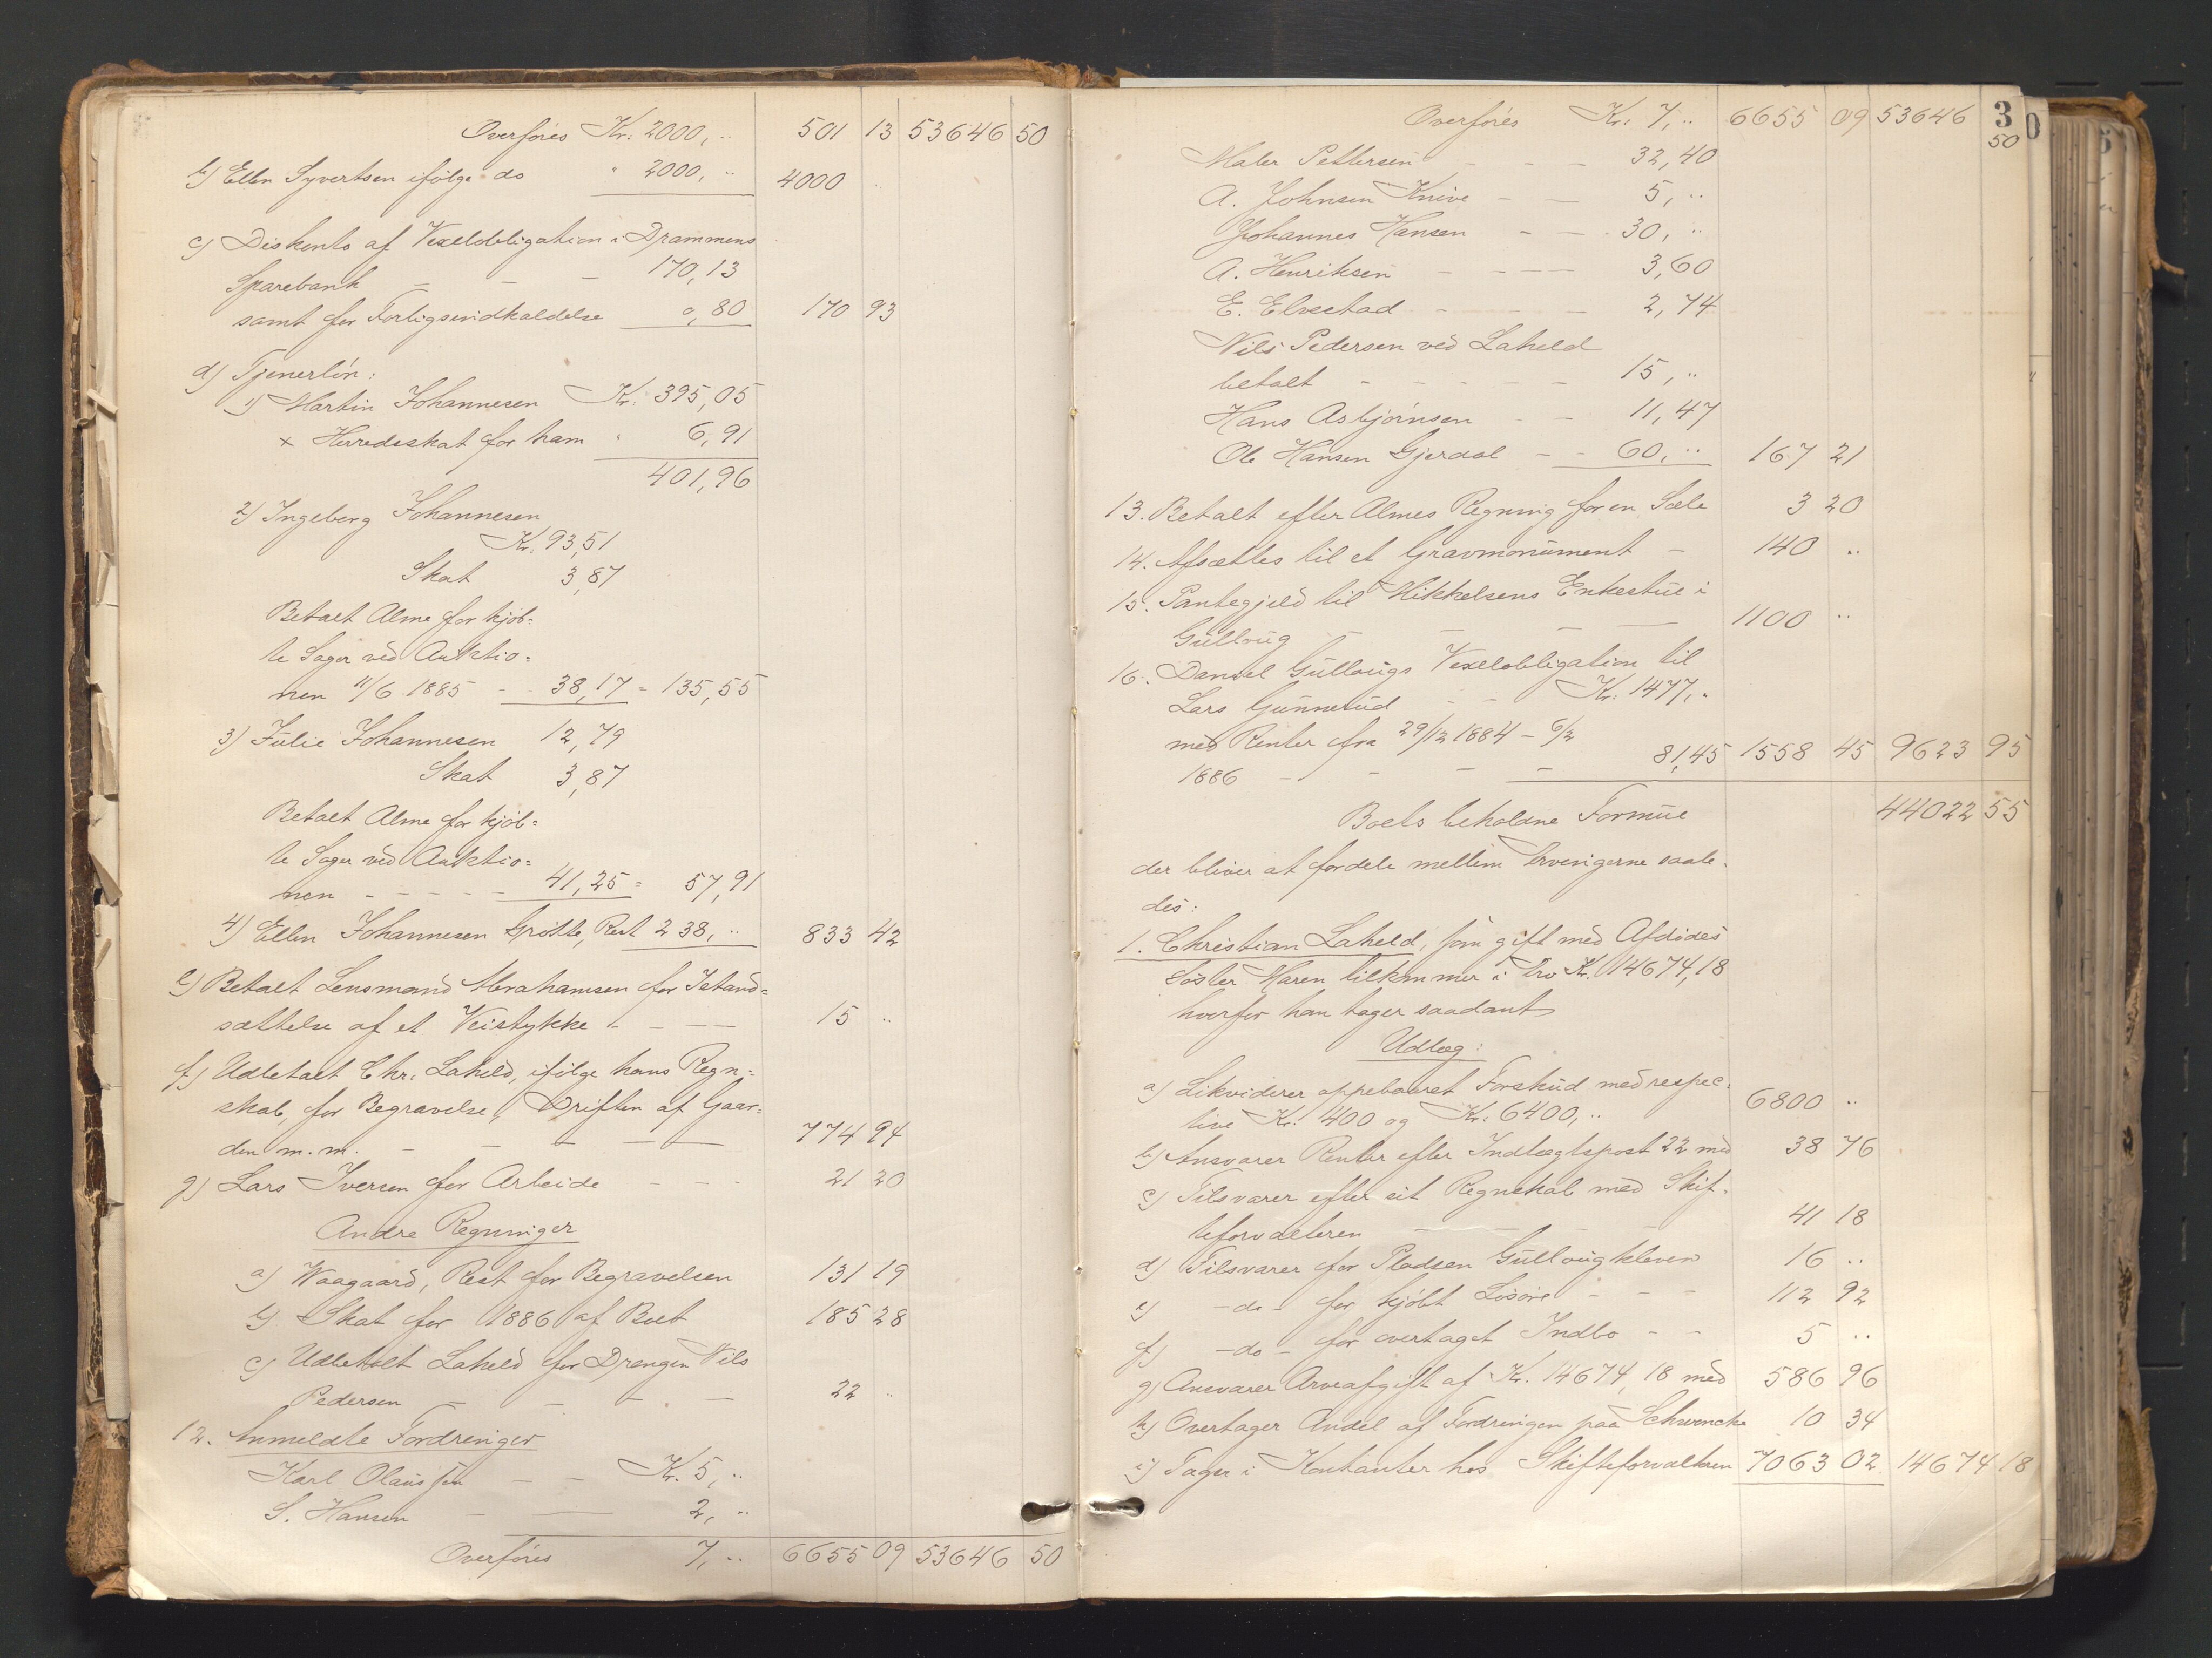 Overføres Kr. 2000, .. 501 13 53646 50
b) Ellen Syvertsen ifølge do " 2000, .. 4000 ..
c) Diskonto af Vexelobligation i Drammens
Sparebank — — — 170,13
samt for Forligsindkaldelse 0,80 170 93
d) Tjenerløn:
1) Martin Johannesen Kr. 395,05
x Herredsskat for ham " 6,91
401,96
2) Ingeborg Johannesen
Kr. 93,51
Skat 3,87
Betalt Alme for kjøb=
te Sager ved Auktio=
nen 11/6 1885 - - 38,17 = 135,55
3) Julie Johannesen 12,79
Skat 3,87
Betalt Alme for kjøb=
te Sager ved Auktio=
nen - - - - - 41,25 = 57,91
4) Ellen Johannesen Grøtte, Rest 238, .. 833 42
e) Betalt Lensmand Abrahamsen for Istand=
sættelse af et Veistykke - — — 15 ..
f) Udbetalt Chr. Laheld, ifølge hans Regn=
skab, for Begravelse, Driften af Gaar=
den m. m. - — — — — 774 94
g) Lars Iversen for Arbeide - - - 21 20
Andre Regninger
a) Waagaard, Rest for Begravelsen 131 19
b) Skat for 1886 af Boet 185 28
c) Udbetalt Laheld for Drengen Nils
Pedersen — — — — 22 ..
12. Anmeldte Fordringer
Karl Olaussen - - Kr. 5, ..
S. Hansen - — 2, ..
Overføres 7, .. 6655 09 53646 50
3
Overføres Kr. 7, .. 6655 09 53646 50
Maler Pettersen - — — 32,40
A. Johnsen Knive - — 5, ..
Johannes Hansen - — 30, ..
A. Henriksen - - - — 3,60
E. Elvestad - - - - 2,74
Nils Pedersen ved Laheld
betalt - - - - - 15, ..
Hans Asbjørnsen - - 11,47
Ole Hansen Gjerdal - - 60, .. 167 21
13. Betalt efter Almes Regning for en Sæle 3 20
14. Afsættes til et Gravmonument - 140 ..
15. Pantegjeld til Mikkelsens Enkestue i
Gullaug - — — — 1100 ..
16. Daniel Gullaugs Vexelobligation til
Lars Gunnerud - - Kr. 1477, ..
med Renter fra 29/12 1884 - 6/2
1886 - - - - 81,45 1558 45 9623 95
Boets beholdne Formue 44022 55
der bliver at fordele mellem Arvingerne saale=
des:
1. Christian Laheld, som gift med Afdødes
Søster Maren tilkommer i Arv Kr. 14674,18
hvorfor han tager saadant
Udlæg:
a) Likviderer oppebaaret Forskud med respec=
tive Kr. 400 og Kr. 6400, .. 6800 ..
b) Ansvarer Renter efter Indtægtspost 22 med 38 76
c) Tilsvarer efter sit Regnskab med Skif=
teforvalteren — — - - 41 18
d) Tilsvarer for Pladsen Gullaugkleven 16 ..
e) - do - for kjøbt Løsøre - - - 112 92
f) - do - for overtaget Indbo - - 5 ..
g) Ansvarer Arveafgift af Kr. 14674,18 med 586 96
h) Overtager Andel af Fordringen paa Schwencke 10 34
i) Tager i Kontanter hos Skifteforvalteren 7063 02 14674 18